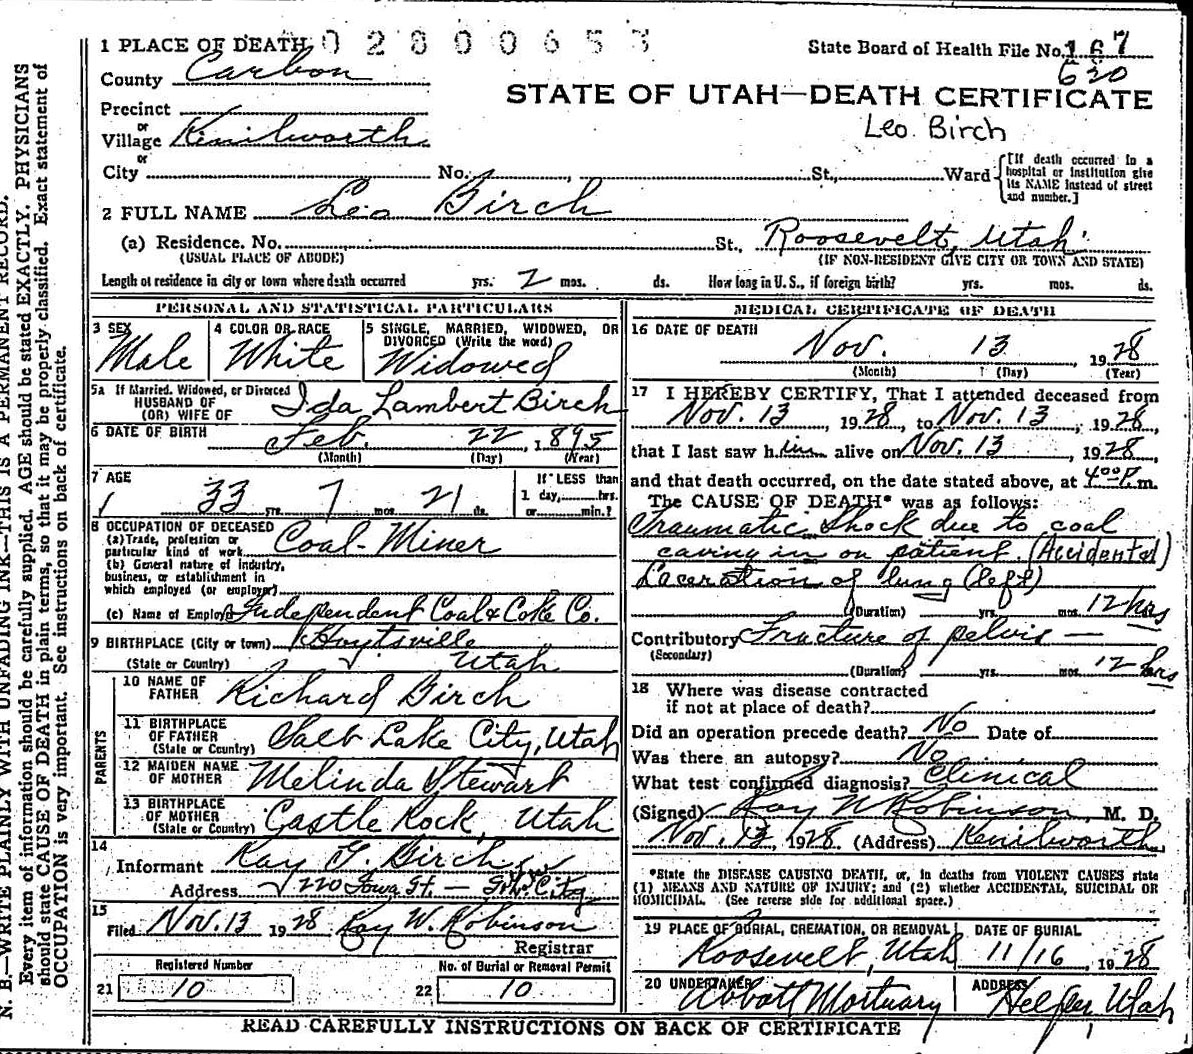 N. B.—WRITE PLAINLY WITH UNFADING INK—THIS IS A PERMANENT RECORD.
Every item of information should be carefully supplied. AGE should be stated EXACTLY. PHYSICIANS
should state CAUSE OF DEATH in plain terms, so that it may be properly classified. Exact statement of
OCCUPATION is very important. See instructions on back of certificate.
1 PLACE OF DEATH 02800653 State Board of Health File No. 167
County Carbon 620
STATE OF UTAH—DEATH CERTIFICATE
Precinct
or
Village Kenilworth Leo. Birch
or
City No. , St., Ward [If death occurred in a hospital or institution give its NAME instead of street and number.]
2 FULL NAME Leo Birch
(a) Residence. No. St., Roosevelt, Utah
(USUAL PLACE OF ABODE) (IF NON-RESIDENT GIVE CITY OR TOWN AND STATE)
Length of residence in city or town where death occurred yrs. 2 mos. ds. How long in U. S., if foreign birth? yrs. mos. ds.
PERSONAL AND STATISTICAL PARTICULARS
3 SEX Male
4 COLOR OR RACE White
5 SINGLE, MARRIED, WIDOWED, OR
DIVORCED (Write the word)
Widowed
5a If Married, Widowed, or Divorced
HUSBAND OF
(OR) WIFE OF Ida Lambert Birch
6 DATE OF BIRTH Feb. 22 1895
(Month) (Day) (Year)
7 AGE 33 yrs. 7 mos. 21 ds.
If LESS than
1 day, hrs.
or min.?
8 OCCUPATION OF DECEASED
(a) Trade, profession or
particular kind of work Coal-Miner
(b) General nature of industry,
business, or establishment in
which employed (or employer)
(c) Name of Employer Independent Coal & Coke Co.
9 BIRTHPLACE (City or town) Hoytsville
(State or Country) Utah
PARENTS
10 NAME OF
FATHER Richard Birch
11 BIRTHPLACE
OF FATHER
(State or Country) Salt Lake City, Utah
12 MAIDEN NAME
OF MOTHER Melinda Stewart
13 BIRTHPLACE
OF MOTHER
(State or Country) Castle Rock, Utah
14
Informant Ray Birch
Address 220 Iowa St. — City
15
Filed Nov. 13 1928 Ray W. Robinson
Registrar
Registered Number
21 10
No. of Burial or Removal Permit
22 10
MEDICAL CERTIFICATE OF DEATH
16 DATE OF DEATH
Nov. 13 1928
(Month) (Day) (Year)
17 I HEREBY CERTIFY, That I attended deceased from
Nov. 13, 1928, to Nov. 13, 1928,
that I last saw him alive on Nov. 13, 1928,
and that death occurred, on the date stated above, at 4:00 P.m.
The CAUSE OF DEATH* was as follows:
Traumatic Shock due to coal
caving in on patient. (Accidental)
Laceration of lung (left)
(Duration) yrs. mos. 12 hrs
Contributory Fracture of pelvis —
(Secondary)
(Duration) yrs. mos. 12 hrs
18 Where was disease contracted
if not at place of death?
Did an operation precede death? No Date of
Was there an autopsy? No
What test confirmed diagnosis? Clinical
(Signed) Ray W Robinson, M. D.
Nov. 13, 1928 (Address) Kenilworth
*State the DISEASE CAUSING DEATH, or, in deaths from VIOLENT CAUSES state
(1) MEANS AND NATURE OF INJURY; and (2) whether ACCIDENTAL, SUICIDAL OR
HOMICIDAL. (See reverse side for additional space.)
19 PLACE OF BURIAL, CREMATION, OR REMOVAL
Roosevelt, Utah
DATE OF BURIAL
11/16, 1928
20 UNDERTAKER
Abbott Mortuary
ADDRESS
Helper, Utah
READ CAREFULLY INSTRUCTIONS ON BACK OF CERTIFICATE